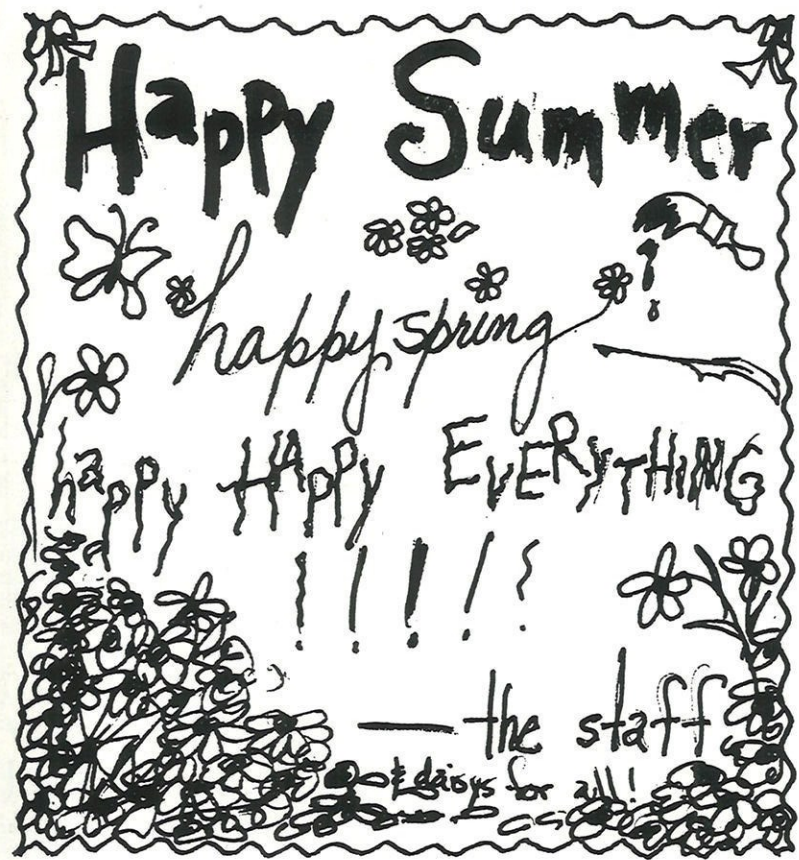 Happy Summer
happy spring
happy HAppy EVERYTHING
!!!!!
— the staff
& daisys for all!